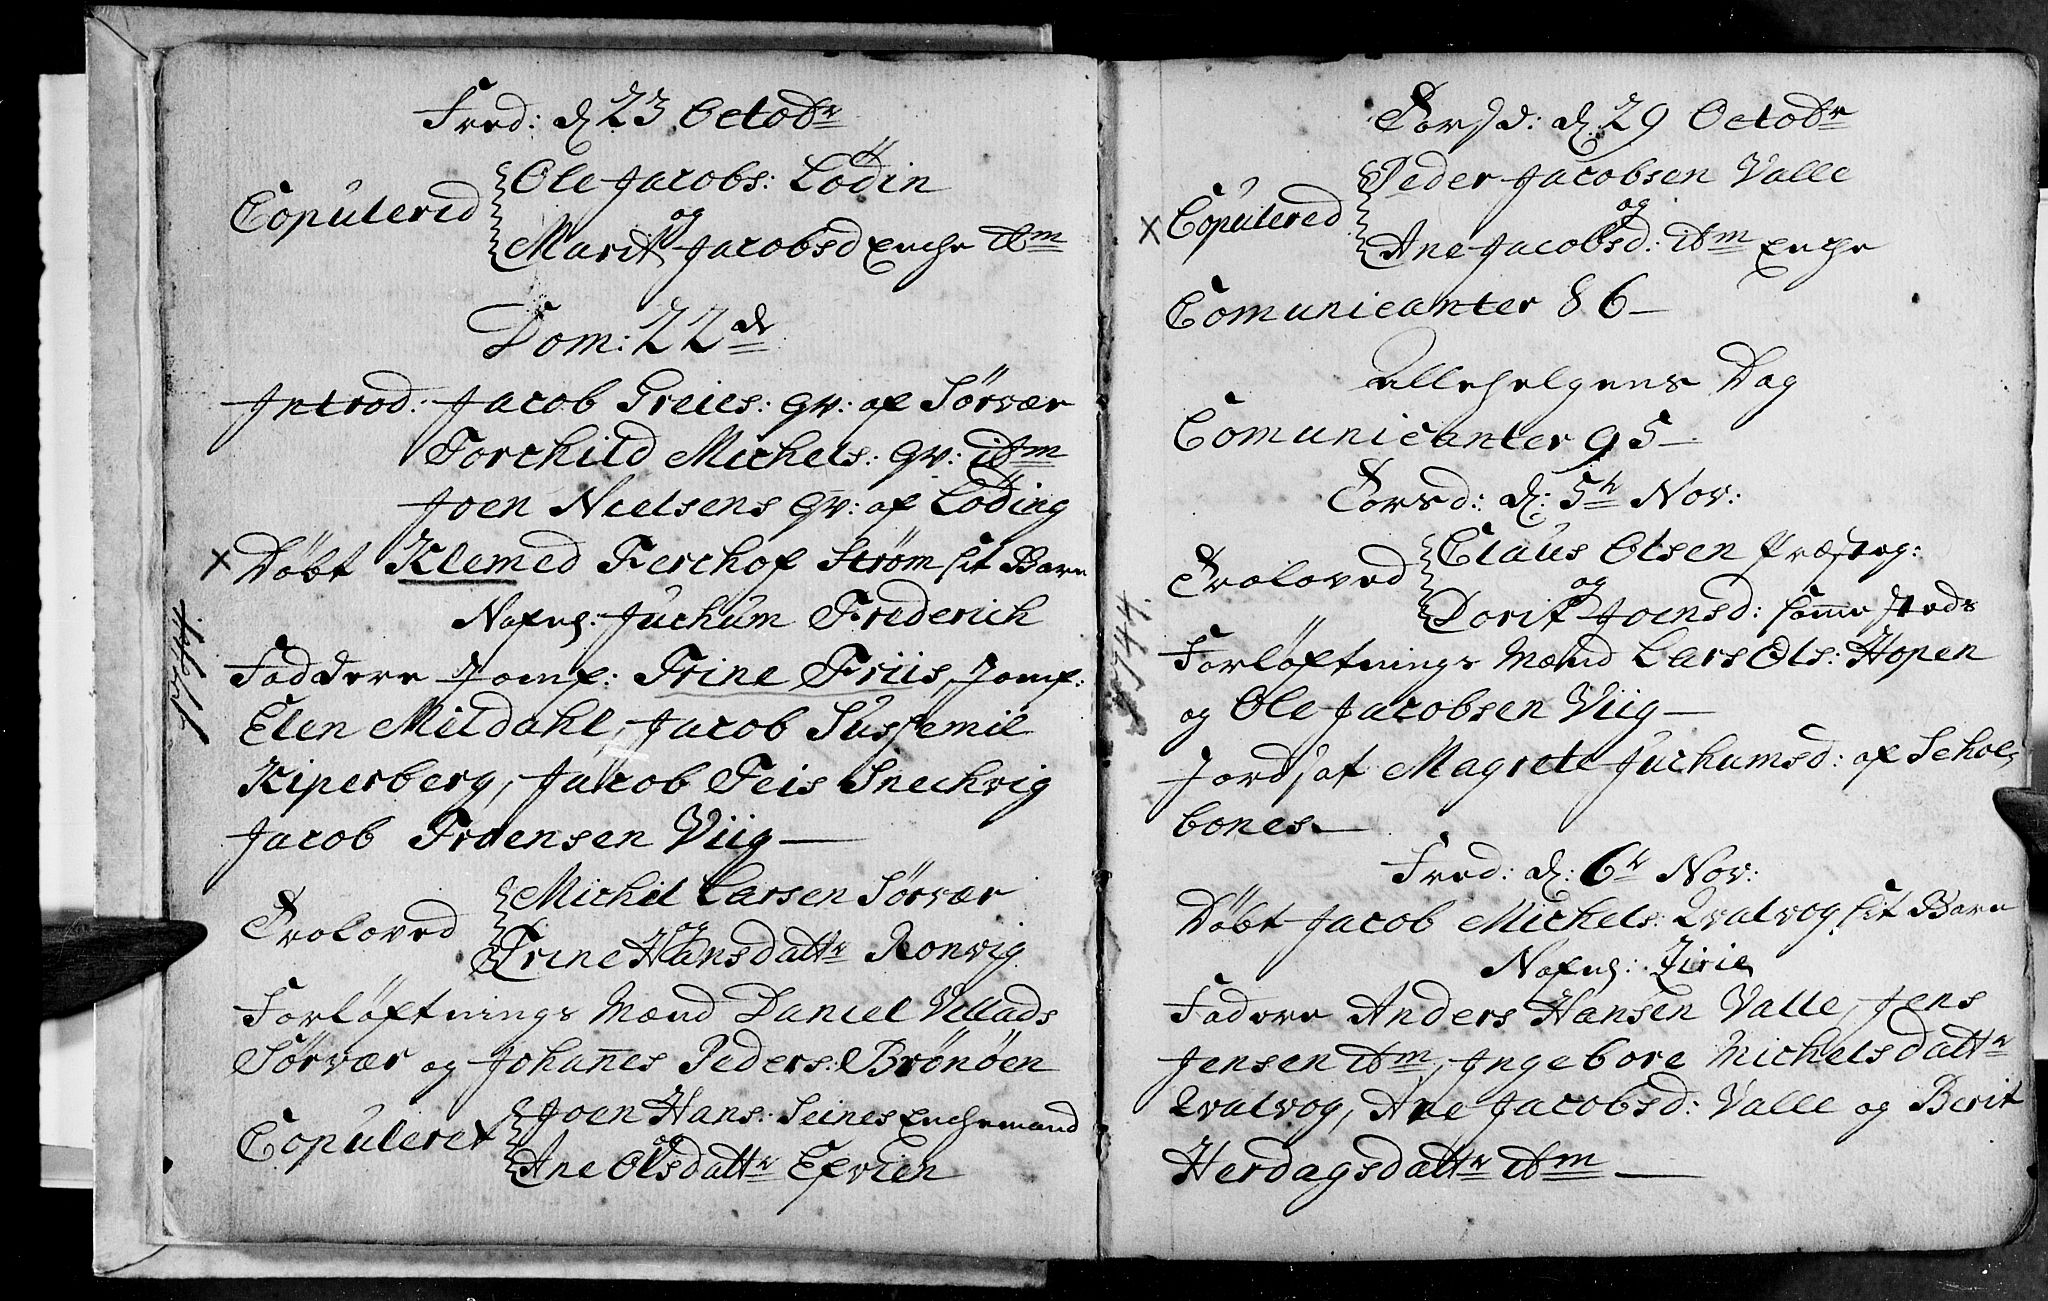 Fred: d 23 Octobr
Copulered
Ole Jacobs: Lødin
og
Marit Jacobsd Enche ibm
Dom: 22de
Introd: Jacob Greies: qv: af Sørvær
Torchild Michels: qv: ibm
Joen Nielsens qv: af Løding
x Døbt Klemed Kerchof Strøm sit Barn
Nafnl: Juchum Frederich
Faddere Jomf: Trine Friis, Jomf:
Elen Mildahl, Jacob Sussemil
Kiperberg, Jacob Teis Snechvig
Jacob Troensen Viig
Troloved
Michel Larsen Sørvær
og
Trine Hansdattr Ronvig
Forløftnings Mænd Daniel Villads
Sørvær og Johannes Peders: Brønøen
Copuleret
Joen Hans: Seines Enchemand
og
Ane Olsdattr Esvien
1744.
Torsd: d. 29 Octobr
x Copulered
Peder Jacobsen Valle
og
Ane Jacobsd: ibm Enche
Comunicanter 86
Allehelgens Dag
Comunicanter 95
Torsd: d: 5te Nov:
Troloved
Claus Olsen Præsteg:
og
Dorit Joensd: samme steds
Forløftnings Mænd Lars Ols: Hopen
og Ole Jacobsen Viig
Jords: af Magrete Juchumsd: af Schol-
bones.
Fred: d: 6te Nov:
Døbt Jacob Michels: Qvalvog sit Barn
Nafnl: Zirie
Fadere Anders Hansen Valle, Jens
Jensen ibm, Ingebore Michelsdattr
Qvalvog, Ane Jacobsd: Valle og Berit
Herdagsdattr ibm
1744.